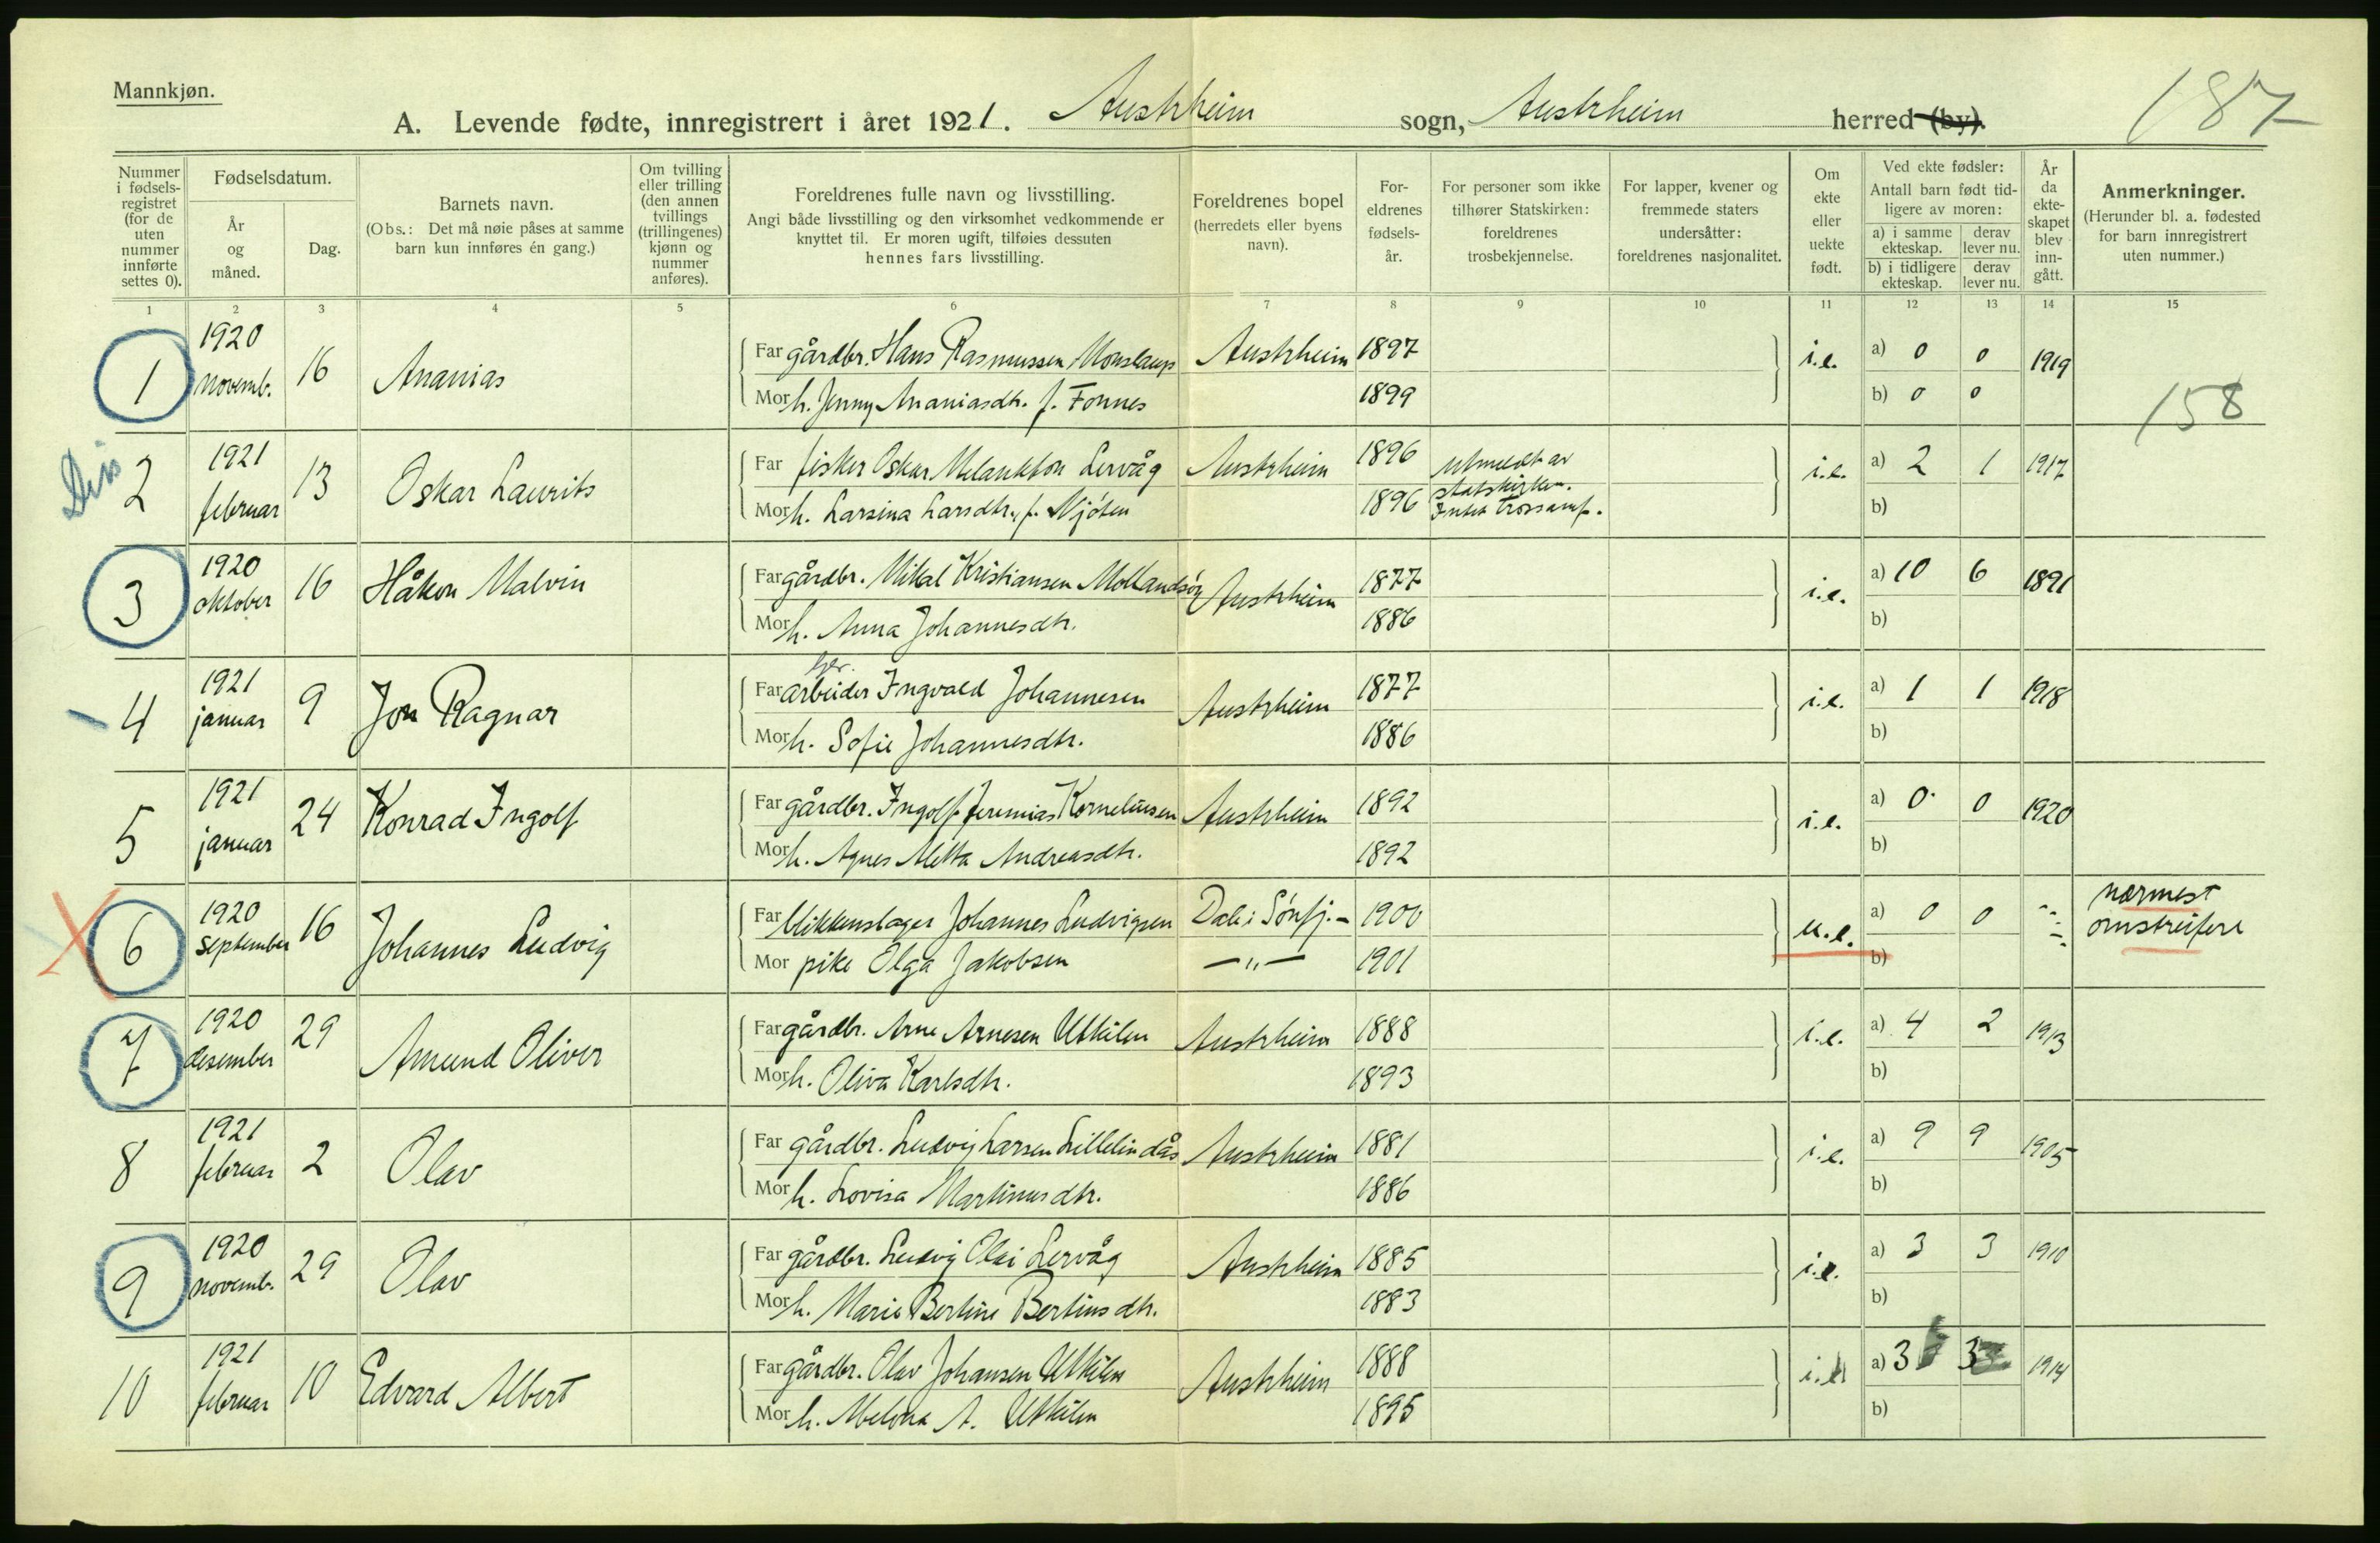 Mannkjøn.
A. Levende fødte, innregistrert i året 1921. Austrheim sogn, Austrheim herred (by).
187
Nummer i fødsels-registret (for de uten nummer innførte settes 0).
Fødselsdatum.
År og måned.
Dag.
Barnets navn.
(Obs.: Det må nøie påses at samme barn kun innføres én gang.)
Om tvilling eller trilling (den annen tvillings (trillingenes) kjønn og nummer anføres).
Foreldrenes fulle navn og livsstilling.
Angi både livsstilling og den virksomhet vedkommende er knyttet til. Er moren ugift, tilføies dessuten hennes fars livsstilling.
Foreldrenes bopel (herredets eller byens navn).
For-eldrenes fødsels-år.
For personer som ikke tilhører Statskirken: foreldrenes trosbekjennelse.
For lapper, kvener og fremmede staters undersåtter: foreldrenes nasjonalitet.
Om ekte eller uekte født.
Ved ekte fødsler:
Antall barn født tid-ligere av moren:
a) i samme ekteskap. derav lever nu.
b) i tidligere ekteskap. derav lever nu.
År da ekte-skapet blev inn-gått.
Anmerkninger.
(Herunder bl. a. fødested for barn innregistrert uten nummer.)
1 2 3 4 5 6 7 8 9 10 11 12 13 14 15
1 1920 novemb. 16 Ananias Far gårdbr. Hans Rasmussen Monslaup Austrheim 1897 i.e. a) 0 0 1919
Mor h. Jenny Ananiasdtr. f. Fonnes 1899 b) 0 0
158
2 1921 februar 13 Oskar Laurits Far fisker Oskar Melankton Lervåg Austrheim 1896 utmeldt av statskirken. i.e. a) 2 1 1917
Mor h. Larsina Larsdtr. f. Njöten 1896 Intet trossamf. b)
3 1920 oktober 16 Håkon Malvin Far gårdbr. Mikal Kristiansen Austrheim 1877 i.e. a) 10 6 1891
Mor h. Anna Johannesdtr. 1886 b)
4 1921 januar 9 Jon Ragnar Far arbeider Ingvald Johannesen Austrheim 1877 i.e. a) 1 1 1918
Mor h. Sofie Johannesdtr. 1886 b)
5 1921 januar 24 Konrad Ingolf Far gårdbr. Ingolf Jeremias Korneliussen Austrheim 1892 i.e. a) 0 0 1920
Mor h. Agnes Aletta Andreasdtr. 1892 b)
6 1920 september 16 Johannes Ludvig Far blikkenslager Johannes Ludvigsen Dale i Sönfj. 1900 u.e. a) 0 0 nærmest omstreifere
Mor pike Olga Jakobsen —"— 1901 b)
7 1920 desember 29 Amund Oliver Far gårdbr. Arne Arnesen Utkilen Austrheim 1888 i.e. a) 4 2 1913
Mor h. Oliva Karlsdtr. 1893 b)
8 1921 februar 2 Olav Far gårdbr. Ludvig Larsen Lillelindås Austrheim 1881 i.e. a) 9 9 1905
Mor h. Lovisa Martinusdtr. 1886 b)
9 1920 novemb. 29 Olav Far gårdbr. Ludvig Olai Lervåg Austrheim 1885 i.e. a) 3 3 1910
Mor h. Marie Bertine Bertinsdtr. 1883 b)
10 1921 februar 10 Edvard Albert Far gårdbr. Olav Johansen Utkilen Austrheim 1888 a) 3 3 1914
Mor h. A. Utkilen 1895 b)